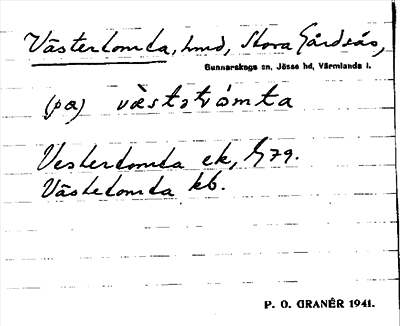 Västertomta, lmd, Stora Gårdsås,
Gunnarskogs sn, Jösse hd, Värmlands l.
(pa) väststómta
Vestertomta ek, G79.
Västetomta kb.
P. O. GRANÉR 1941.